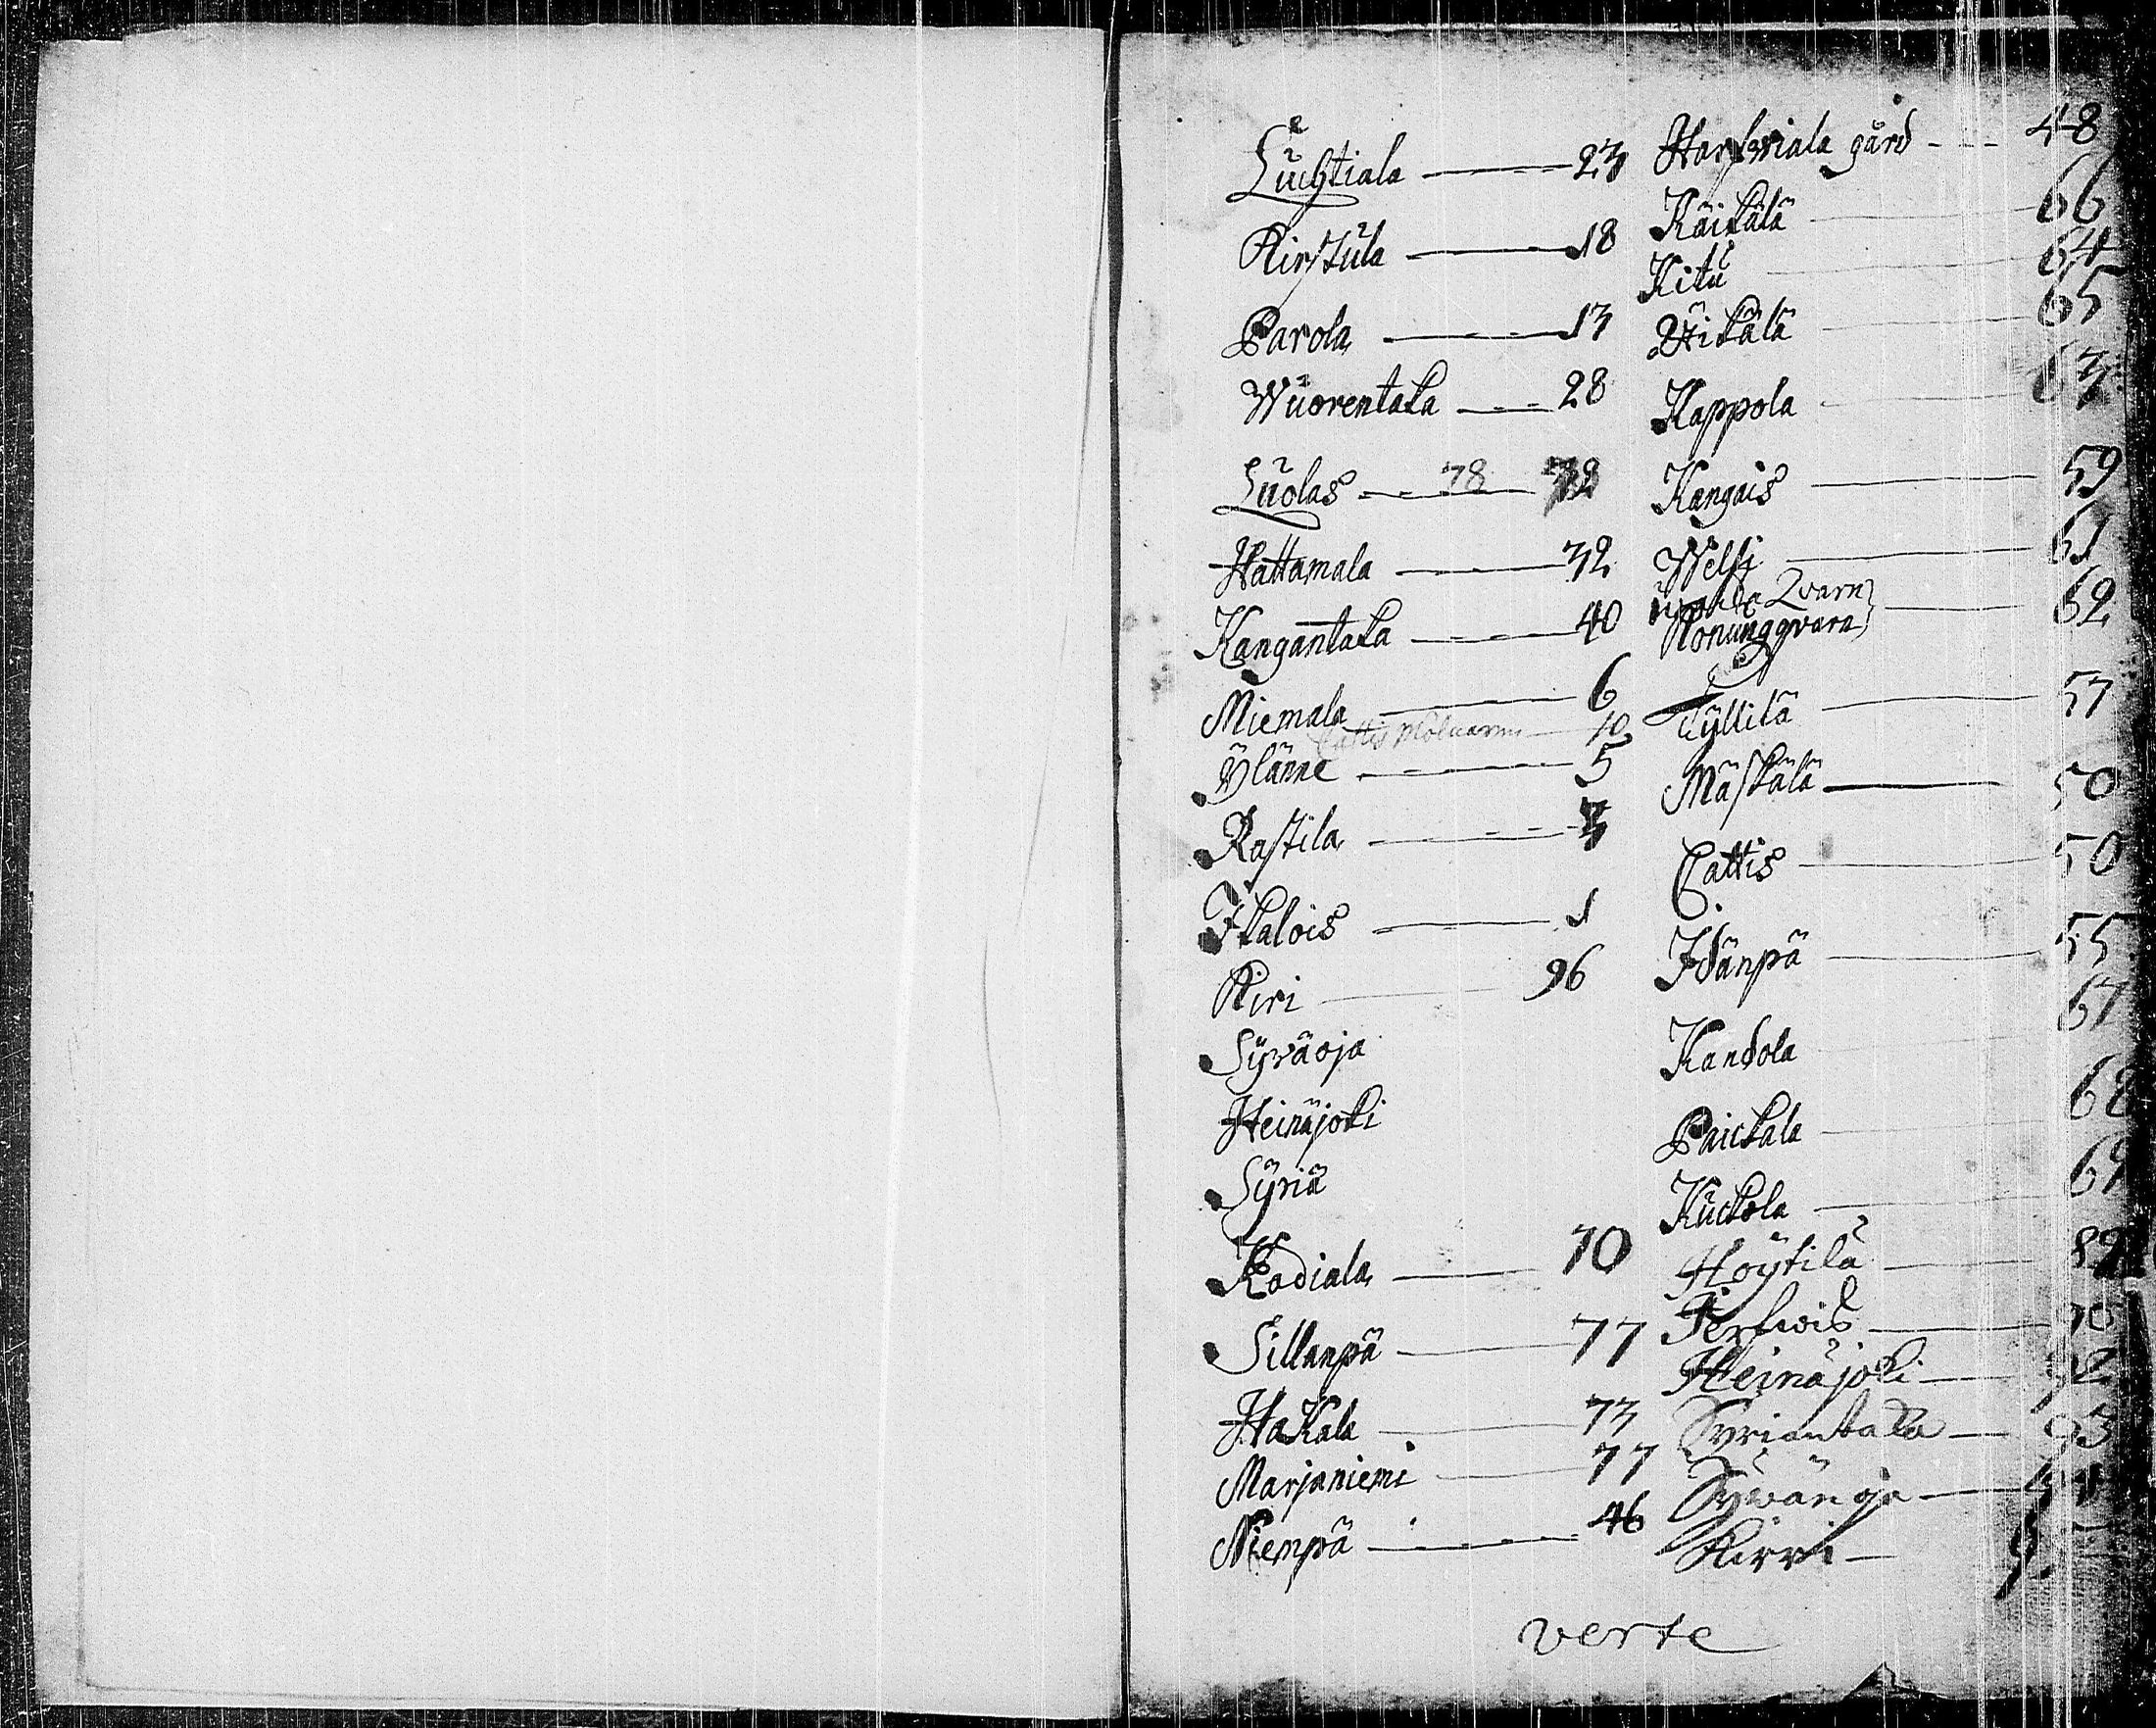 Luchtiala 23
Kirstula 18
Parola 13
Wuorentaka 28
Luolas 78
Hattamala 32
Kangantaka 40
Miemala 6
Cattis 10
Ylänne 5
Rastila 3
Ikalois 1
Kiri 96
Sywäoja
Heinäjoki
Syriä
Kadiala 70
Sillanpä 77
Hakala 73
Marjaniemi 77
Niempä 46
Harfwiala gård 48
Käikälä 66
Kitu 64
65
Kappola 63
Kangais 59
61
Qvarn
Konungqvarn 62
Tyllilä 57
Mäskälä 50
Cattis 50
Idänpä 55
Kandola 67
Paickala 68
Kuckola 69
Höytilä 89
Perfwis
Heinäjoki 92
Syriantaka 93
Sywänoja
Kirri
verte